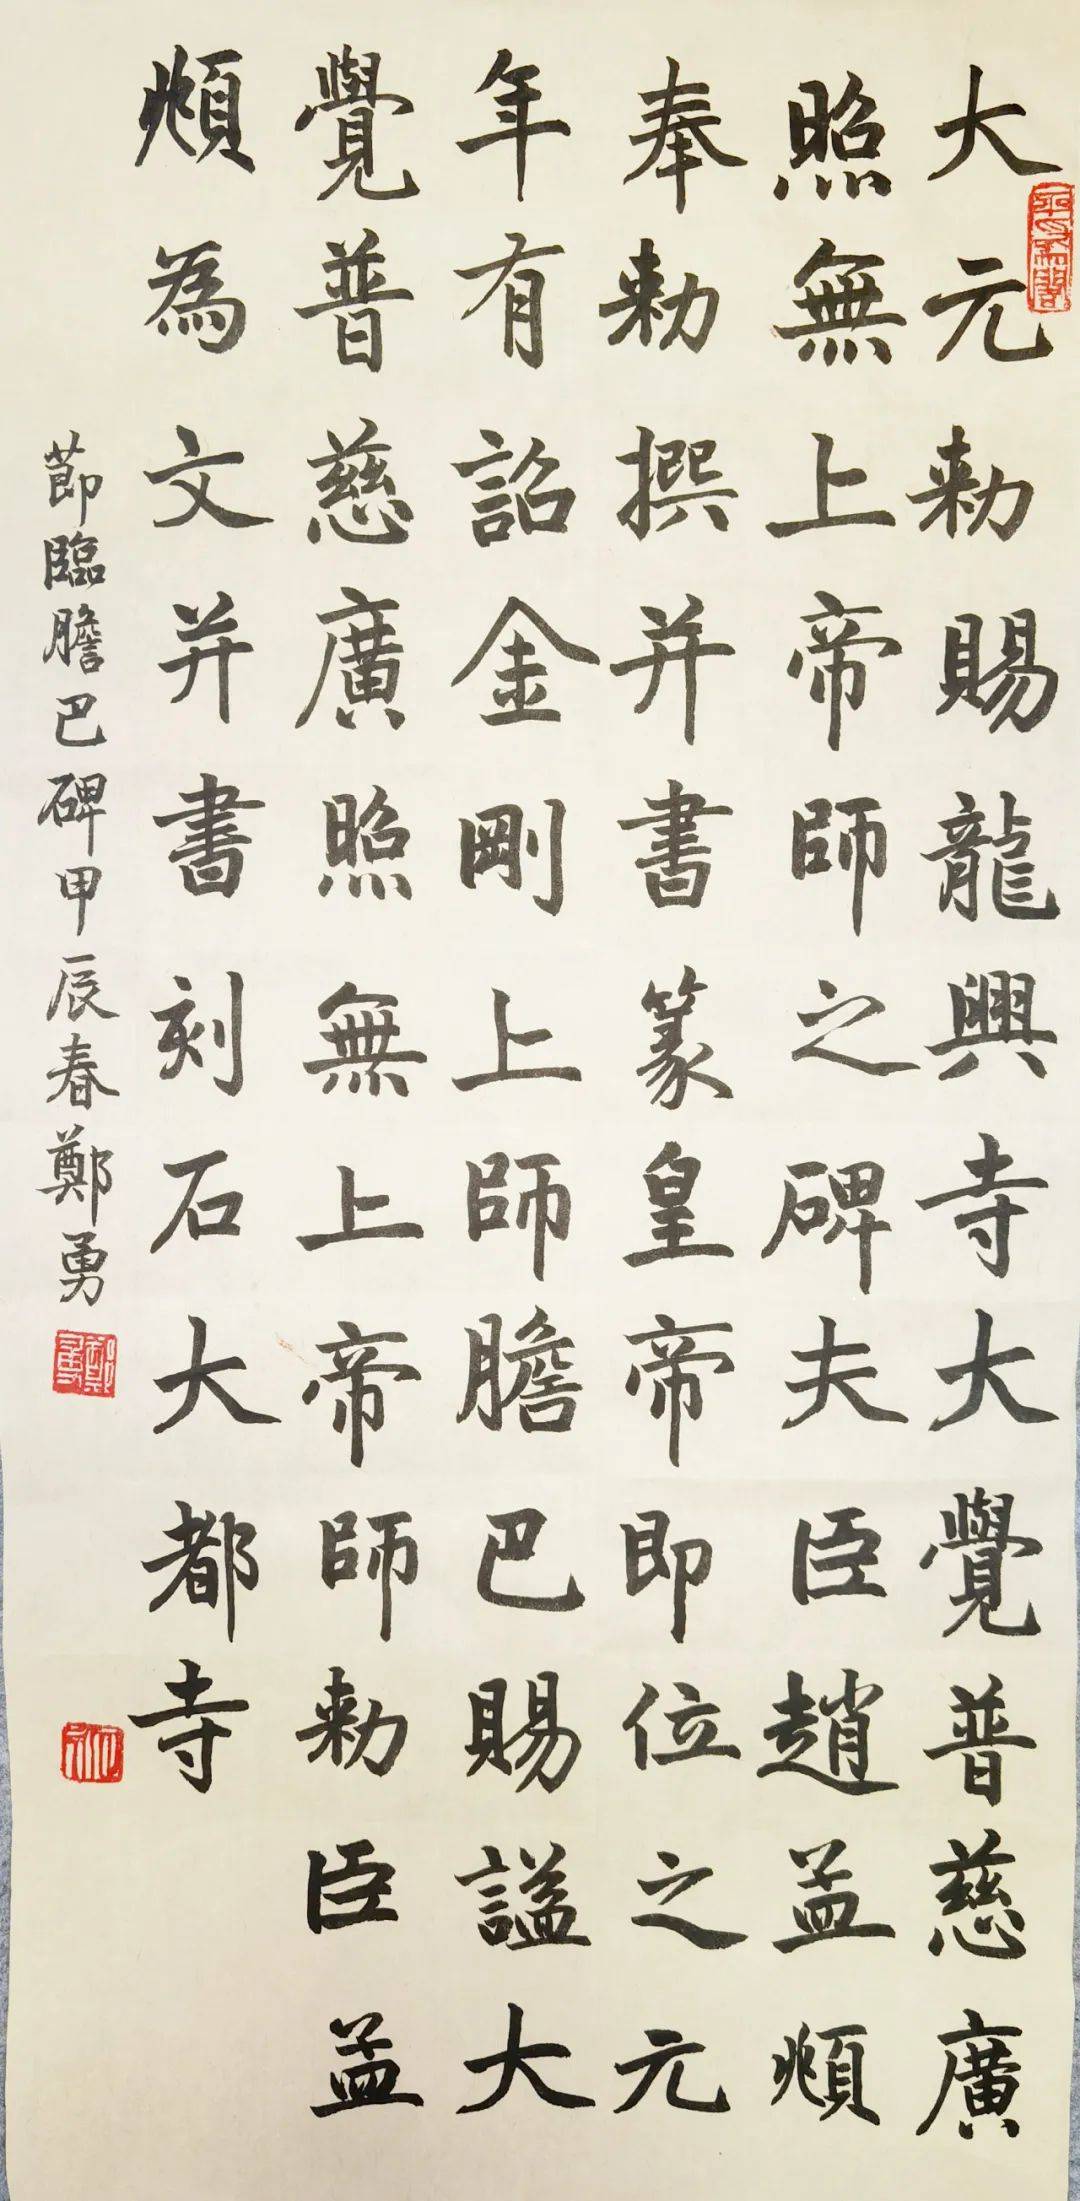 大元勑賜龍興寺大覺普慈廣
照無上帝師之碑夫臣趙孟頫
奉勑撰并書篆皇帝即位之元
年有詔金剛上師膽巴賜謚大
覺普慈廣照無上帝師勑臣孟
頫為文并書刻石大都寺
節臨膽巴碑甲辰春鄭勇
鄭勇